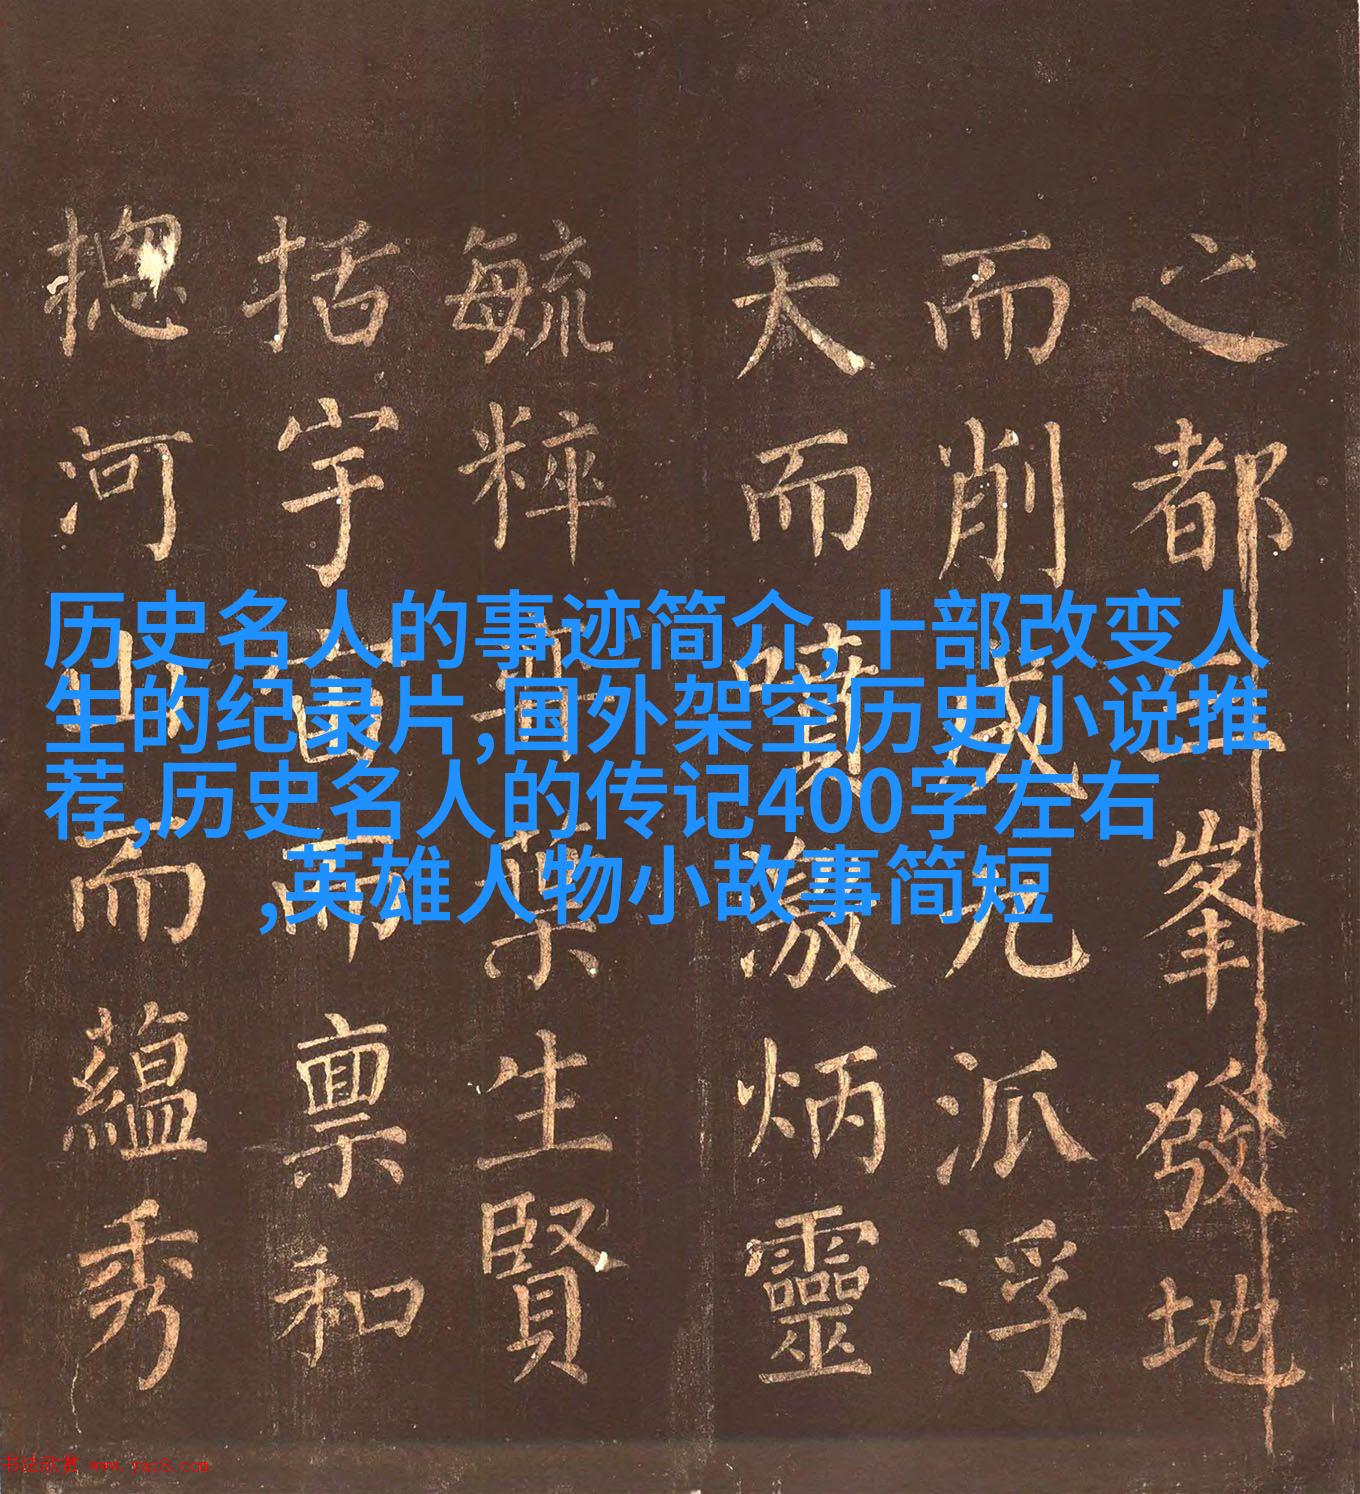 历史名人的事迹简介,十部改变人
生的纪录片,国外架空历史小说推
荐,历史名人的传记400字左右
,英雄人物小故事简短
之都五峯發地
而削成九派浮
天而噴激炳靈
毓粹葉生賢
括宇宙而禀和
捴河山而蘊秀
书法欣赏 www.yac8.com